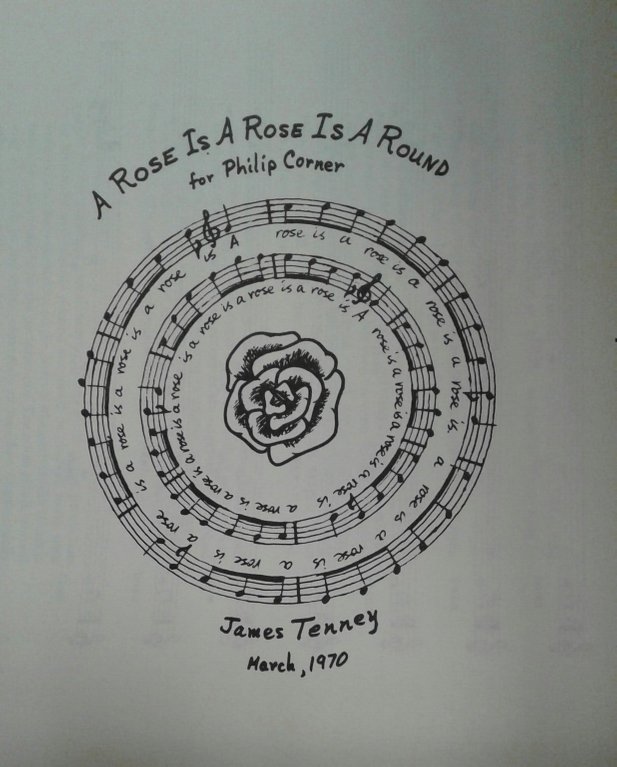 A ROSE IS A ROSE IS A ROUND
for Philip Corner
A rose is a rose is a rose is a rose is a rose is a rose is a rose is a rose is a rose is a rose is a rose is
A rose is a rose is a rose is a rose is a rose is a rose is a rose is a rose is a rose is a rose is a rose is
James Tenney
March, 1970